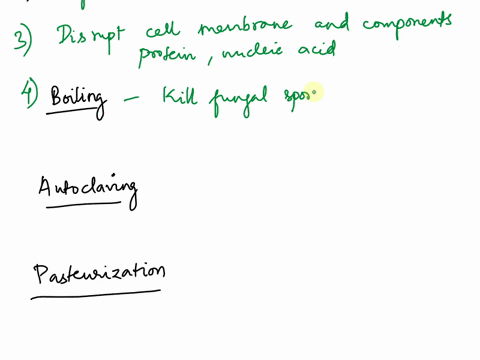 3) Disrupt cell membrane and components
protein, nucleic acid
4) Boiling – Kill fungal spor
Autoclaving
Pasteurization